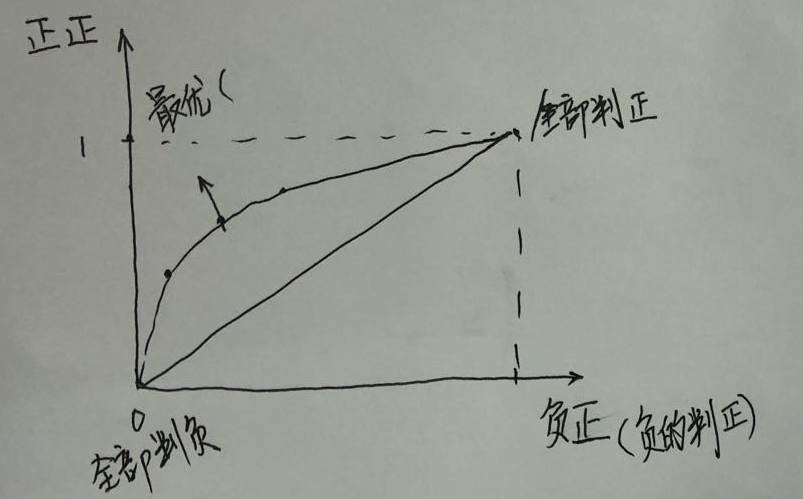 正正
最优(
1
全部判正
0
全部判负
负正(负的判正)